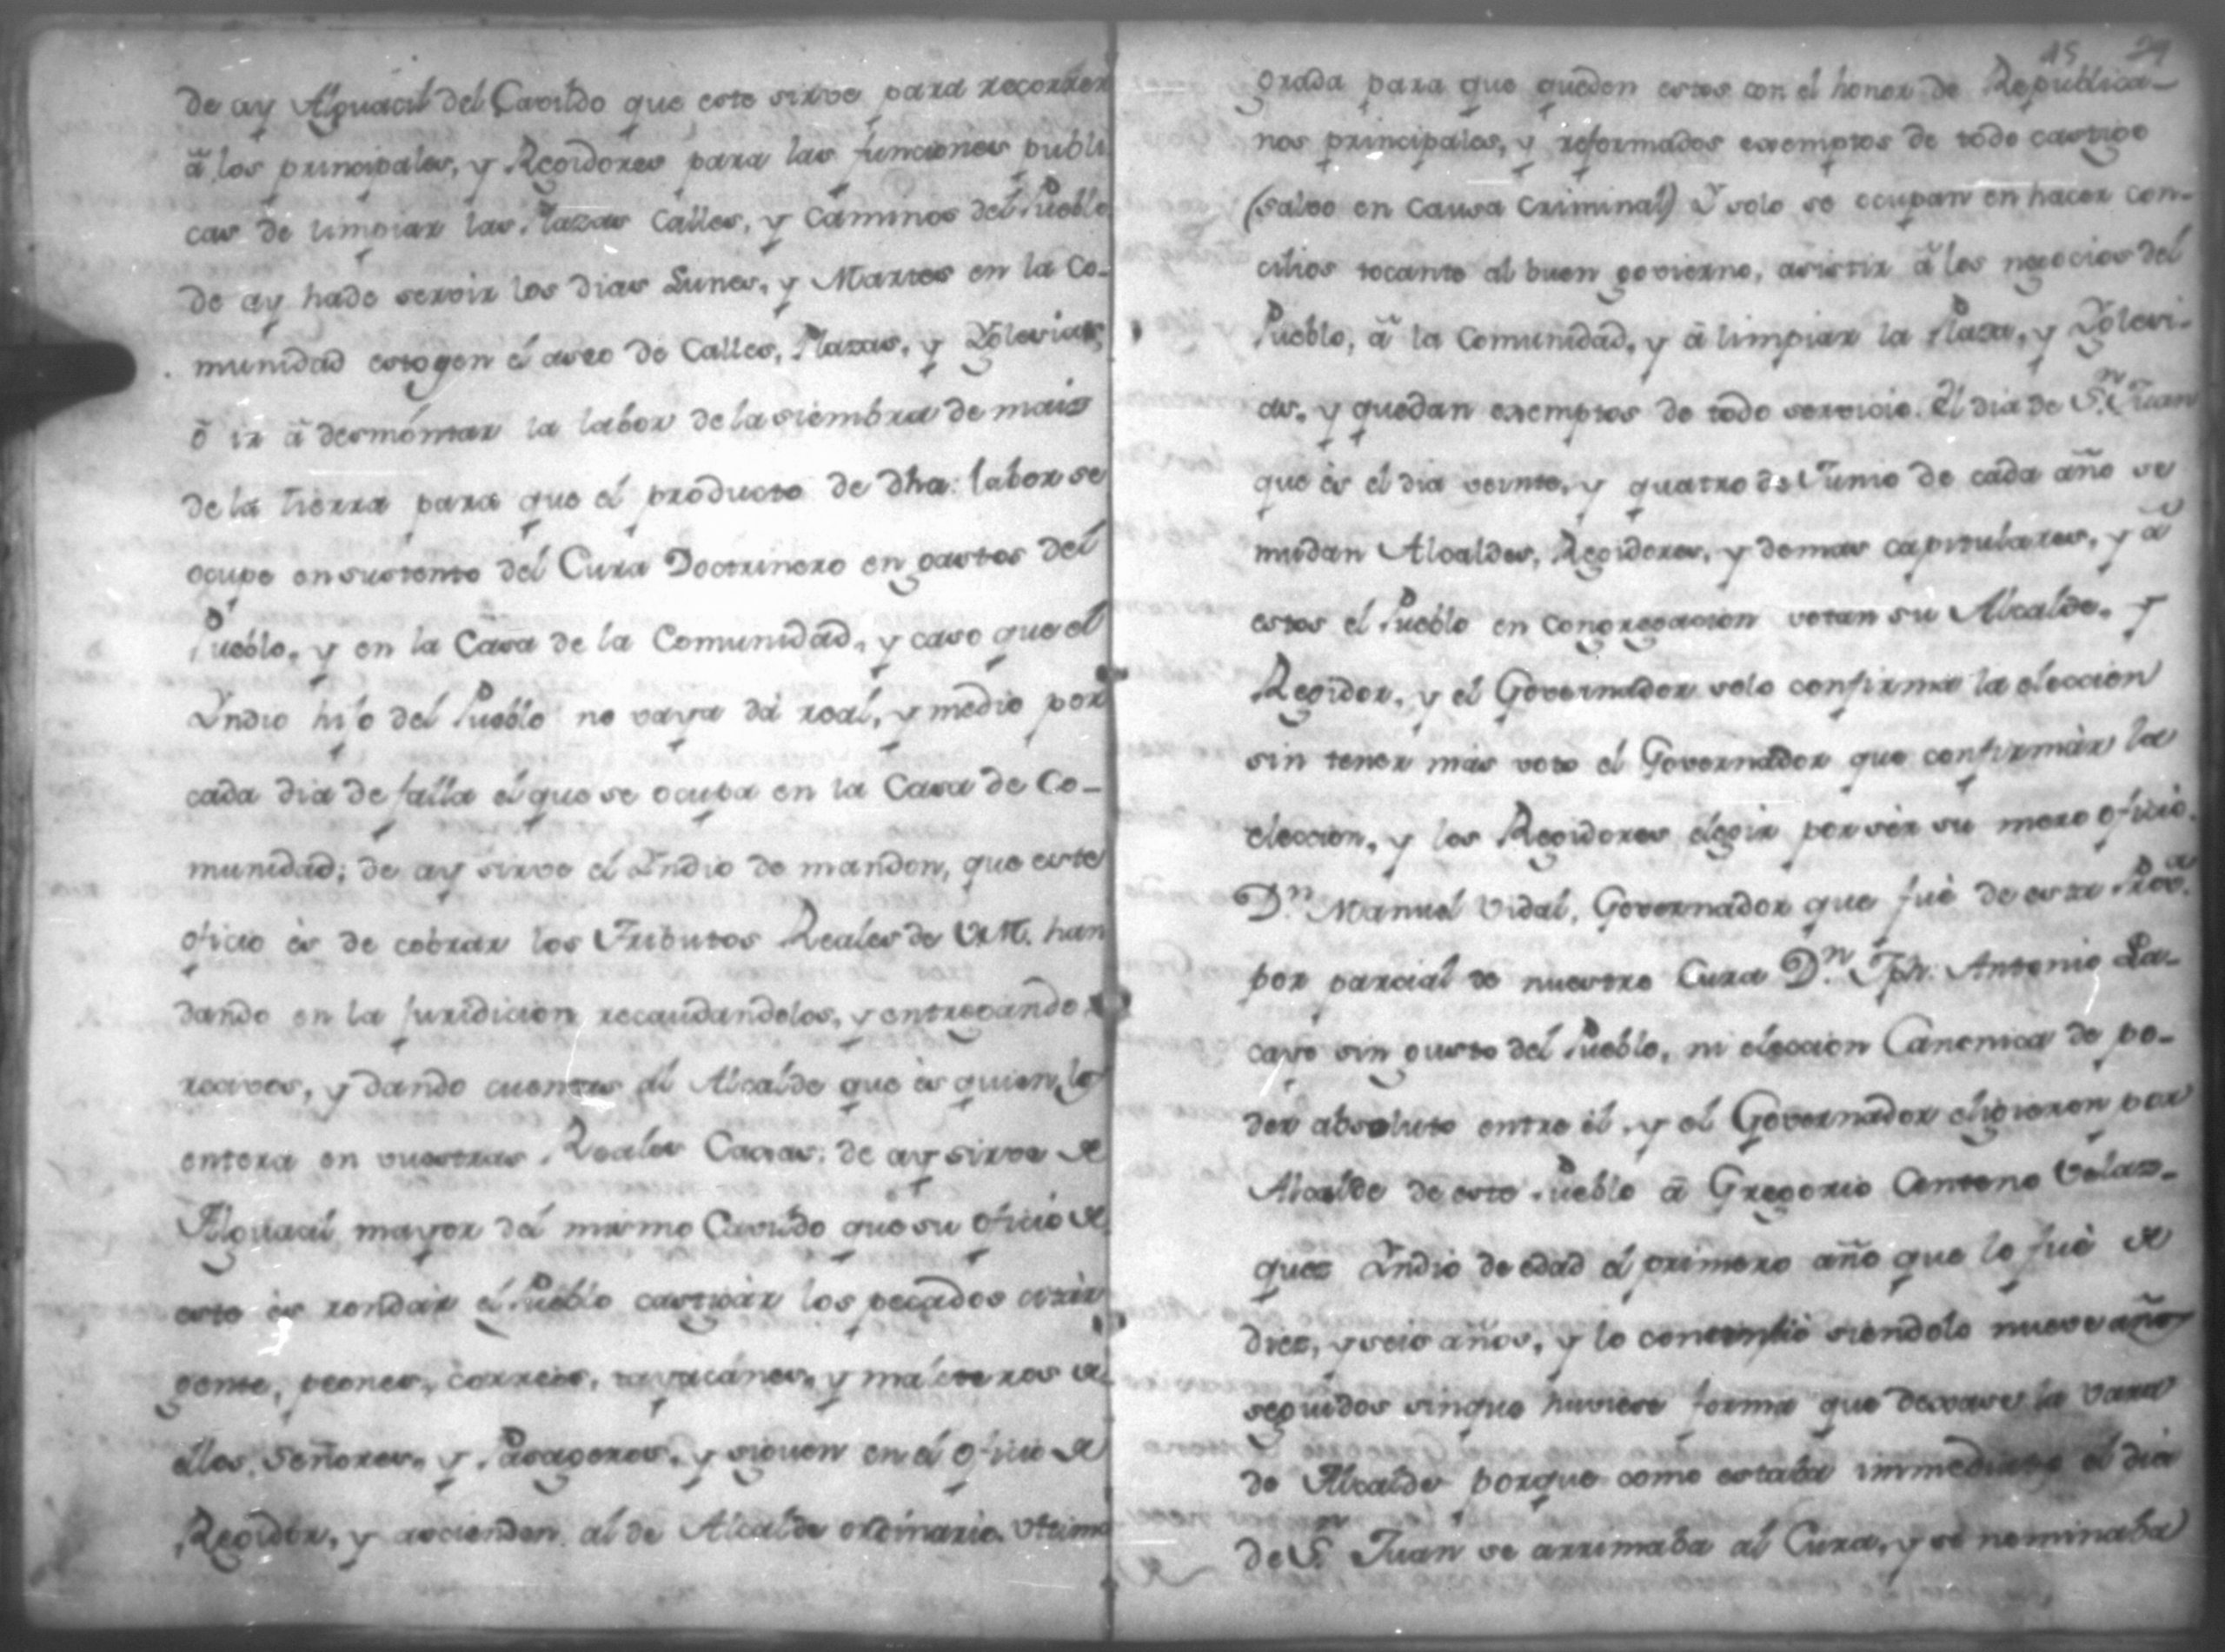 de ay Alguacil del Cavildo que este sirve para recorrer
â los principales, y Regidores para las funciones publi
cas de limpiar las Plazas Calles, y Caminos del Pueblo
de ay hade servir los dias Lunes, y Martes en la Co-
munidad esto gen el aseo de Calles, Plazas, y Yglesias,
ô ir â desmontar la labor de la siembra de mais
de la tierra para que el producto de dha: labor se
ocupe en sustento del Cura Doctrinero en gastos del
Pueblo, y en la Casa de la Comunidad, y caso que el
Yndio hijo del Pueblo no vaya dá real, y medio por
cada dia de falla el que se ocupa en la Casa de Co-
munidad; de ay sirve el Yndio de mandon, que este
oficio és de cobrar los Tributos Reales de V.M. han
dando en la juridicion recaudandolos, y entregando
recivos, y dando cuentas al Alcalde que és quien lo
entera en vuestras Reales Caxas: de ay sirve de
Alguacil mayor del mismo Cavildo que su oficio de
este és rondár el Pueblo castigár los pecados citár
gente, peones, correos, y maleteros de
ellos, Señores, y Pasageros, y siguen en el oficio de
Regidor, y ascienden al de Alcalde ordinario. Ultima
15 29
grada para que queden estos con el honor de Republica-
nos principales, y reformados exemptos de todo castigo
(salvo en Causa Criminal) Y solo se ocupan en hacer con-
cilios tocante al buen govierno, asistir â los negocios del
Pueblo, â la Comunidad, y â limpiar la Plaza, y Yglesi-
as, y quedan exemptos de todo servicio. El dia de S.n Juan
que és el dia veinte, y quatro de Junio de cada año se
mudan Alcaldes, Regidores, y demas capitulares, y â
estos el Pueblo en congregacion votan su Alcalde, y
Regidor, y el Governador solo confirma la eleccion
sin tener más voto el Governador que confirmár la
eleccion, y los Regidores elegir por sér su mero oficio.
D.n Manuel Vidal, Governador que fué de esta Prov.a
por parcial de nuestro Cura D.n Jph. Antonio La-
sin gusto del Pueblo, ni eleccion Canonica de po-
der absoluto entre él, y el Governador eligieron por
Alcalde de este Pueblo â Gregorio Centeno Velaz-
quez Yndio de edad el primero año que lo fué de
diez, y seis años, y lo siendolo nueve años
seguidos sin que huviese forma que dexase la vara
de Alcalde porque como estaba immediato el dia
de S.n Juan se arrimaba al Cura, y se nominaba